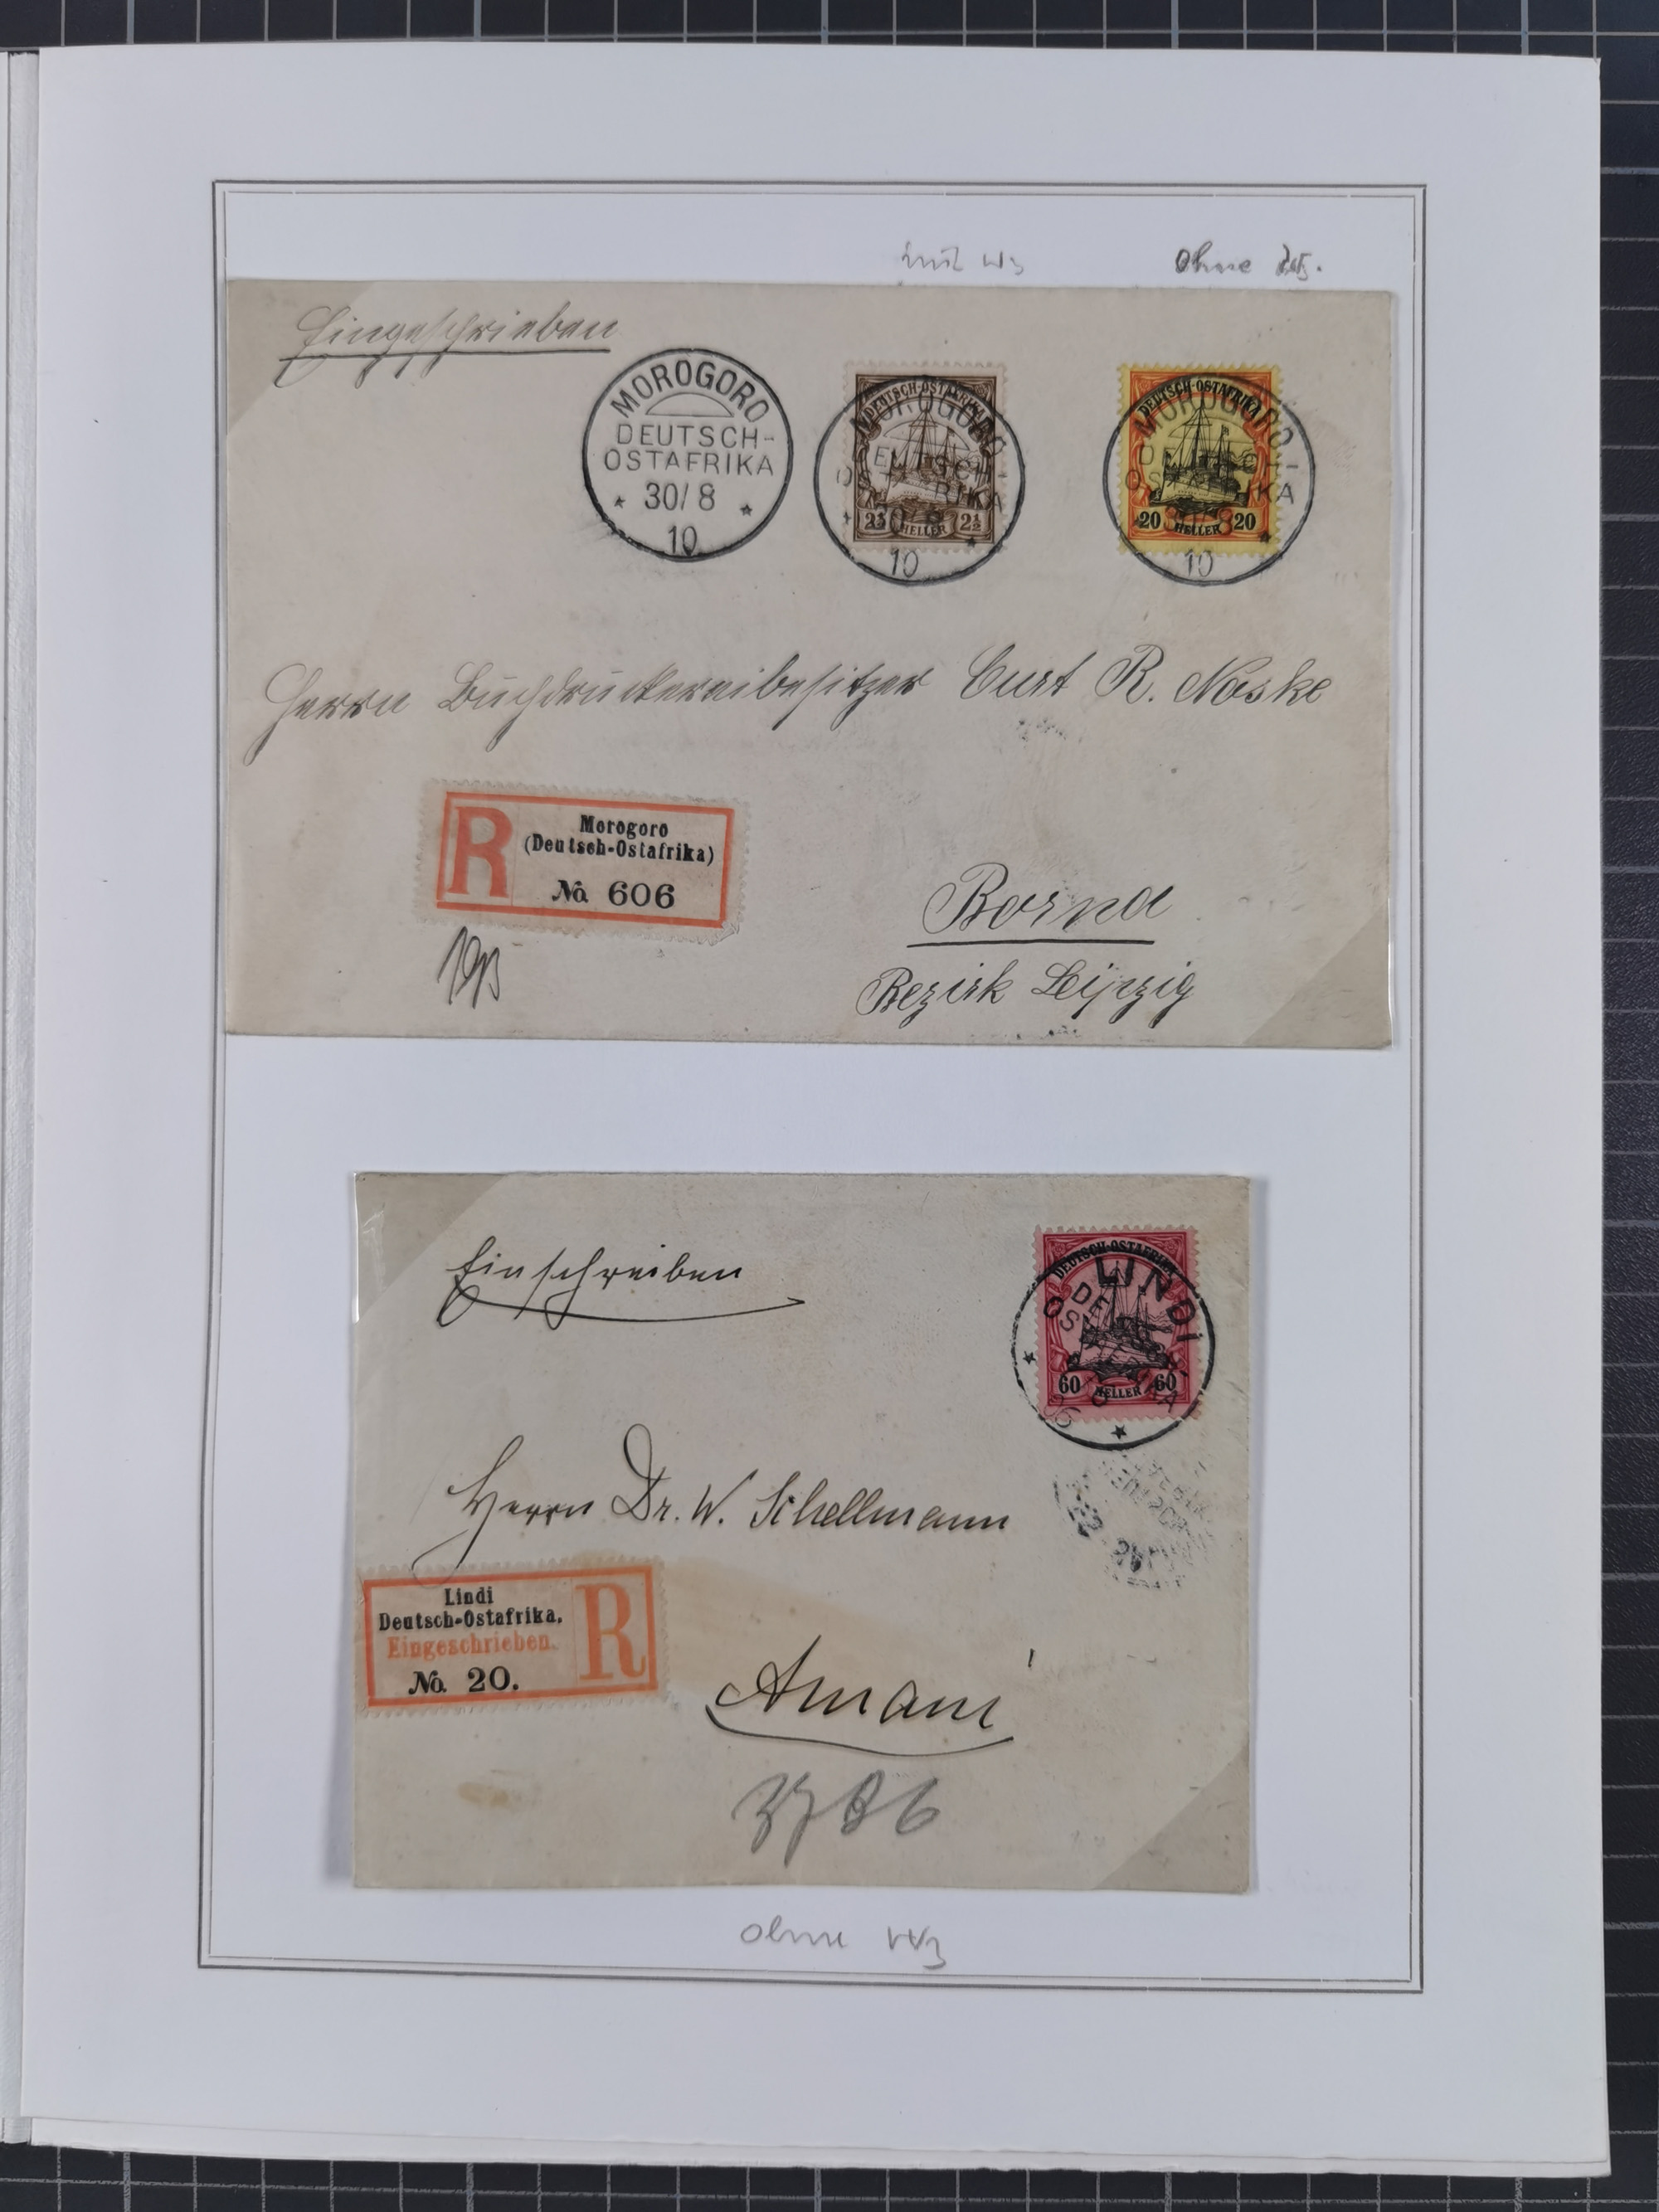 mit Wz
ohne Wz.
Eingeschrieben
MOROGORO
DEUTSCH-
OSTAFRIKA
* 30/8 *
10
DEUTSCH-OSTAFRIKA
2½ HELLER 2½
MOROGORO
DEUTSCH-
OSTAFRIKA
* 30/8 *
10
DEUTSCH-OSTAFRIKA
20 HELLER 20
MOROGORO
DEUTSCH-
OSTAFRIKA
30/8 *
10
Herrn Buchdruckereibesitzer Curt R. Noske
R
Morogoro
(Deutsch-Ostafrika)
No. 606
Borna
Bezirk Leipzig
Einschreiben
DEUTSCH-OSTAFRIKA
60 HELLER 60
LINDI
DEUTSCH
OSTAFRIKA
06
Herrn Dr. W. Schellmann
Lindi
Deutsch-Ostafrika.
Eingeschrieben.
No. 20.
R
Amani
3786
ohne Wz